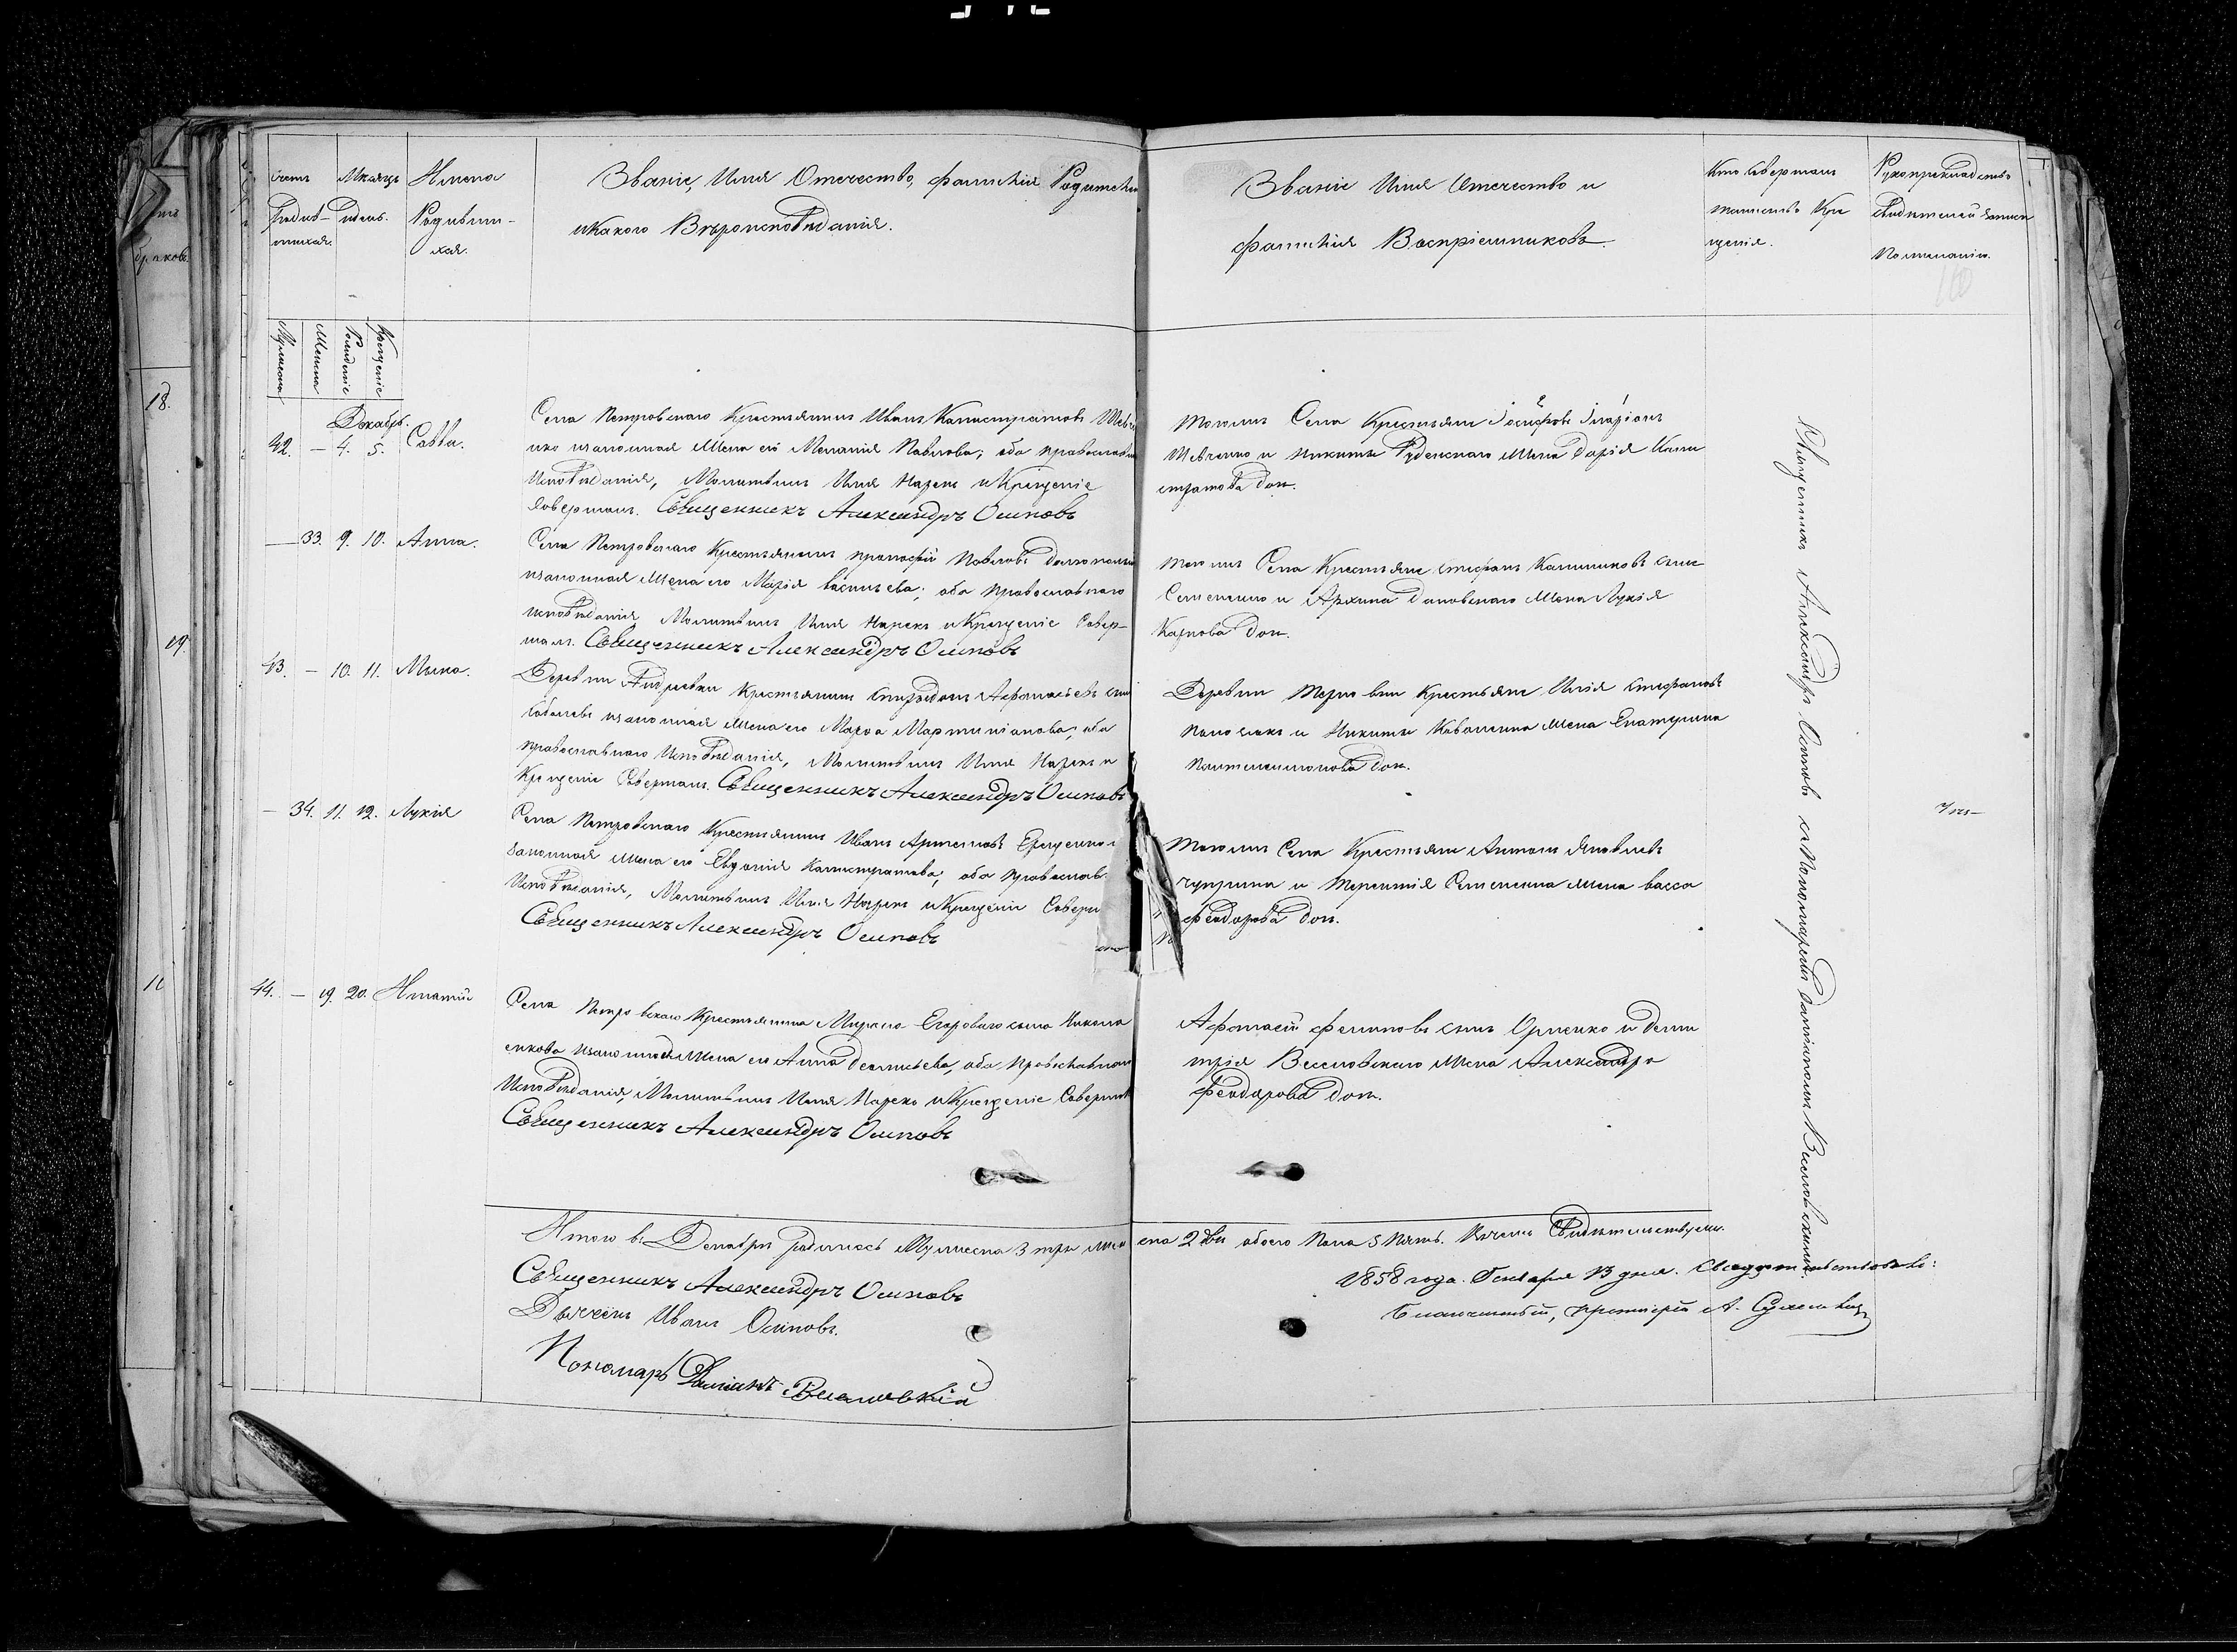 Счетъ
Родив-
шихся.
Мѣсяцъ
и день.
Имена
Родивши-
хся.
Званіе, Имя Отечество, фамилія Родителей
и какого Вѣроисповѣданія.
Званіе Имя Отечество и
фамилія Воспріемниковъ
Кто совершалъ
таинство Кре
щенія.
Рукоприкладство
свидѣтелей записи
по желанію.
Мужеска
Женска
Рожденіе
Крещеніе
18.
19.
Декабрь.
42. — 4. 5. Савва.
Села Петровскаго Крестьянинъ Иванъ Калистратовъ Шевче
нко и законная Жена его Меланія Павлова; оба православна
Исповѣданія, Молитвилъ Имя Нарекъ и Крещеніе
Совершалъ. Священникъ Александръ Осиповъ
Тогожъ Села Крестьяне Іосифовъ Иларіонъ
Шевченко и Никиты Руденскаго Жена Дарія Кали
стратова дочь.
— 33. 9. 10. Анна.
Села Петровскаго Крестьянинъ Прокофій Павловъ
и законная Жена его Марія Васильева; оба православнаго
исповѣданія Молитвилъ Имя Нарекъ и Крещеніе Совер-
шалъ. Священникъ Александръ Осиповъ
Тогожъ Села Крестьяне Стефанъ Калиниковъ сынъ
Семененко и Архипа Дановскаго Жена Лукія
Карпова дочь.
43. — 10. 11. Мина.
Деревни Андреевки Крестьянинъ Спиридонъ Афанасьевъ сынъ
Соболевъ и законная Жена его Марфа Мартиніанова; оба
православнаго Исповѣданія, Молитвилъ Имя Нарекъ и
Крещеніе Совершалъ. Священникъ Александръ Осиповъ
Деревни Терновки Крестьяне Илія Стефановъ
и Никиты Коваленка Жена Екатерина
Пантелеимонова дочь.
— 34. 11. 12. Лукія
Села Петровскаго Крестьянинъ Иванъ Артемовъ Ерещенко и
законная Жена его Евдокія Калистратова, оба православ
Исповѣданія, Молитвилъ Имя Нарекъ и Крещеніе Соверш
Священникъ Александръ Осиповъ
Тогожъ Села Крестьяне Антонъ Яковлевъ
Чуприна и Терентія Семененка жена Васса
Феодорова дочь.
44. — 19. 20. Игнатій
Села Петровскаго Крестьянина Мирона Егорова сына Никола
енкова и законная Жена его Анна Дементьева, оба православнаго
Исповѣданія, Молитвилъ Имя Нарекъ и Крещеніе Совершалъ
Священникъ Александръ Осиповъ
Афанасій Филиповъ сынъ Орленко и Дими
трія Виселовскаго Жена Александра
Феодорова дочь.
Священникъ Александръ Осиповъ съ Пономаремъ Даміаномъ Виселовскимъ.
Итого въ Декабрѣ родилось Мужеска 3 три женска 2 две обоего Пола 5 Пять. Въ чемъ Свидѣтельствуемъ.
Священникъ Александръ Осиповъ
Дьячекъ Иванъ Осиповъ.
Пономарь Даміанъ Виселовскій
1858 года. Генваря 13 дня. Свидѣтельствовалъ:
Благочинный, протоіерей А.